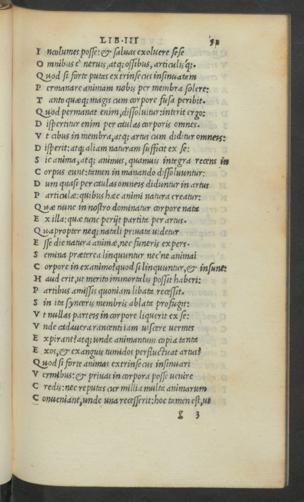 LIB. III 51
I ncolumes posse: & saluas exoluere sese
O mnibus è neruis, atq; ossibus, articulisq;.
Q uod si forte putas extrinsecus insinuatam
P ermanare animam nobis per membra solere:
T anto quæq; magis cum corpore fusa peribit.
Q uod permanat enim, dissoluitur: interit ergo:
D ispertitur enim per caulas corporis omneis.
V t cibus in membra, atq; artus cum diditur omneis:
D isperit: atq; aliam naturam sufficit ex se:
S ic anima, atq; animus, quamuis integra recens in
C orpus eunt: tamen in manando dissoluuntur:
D um quasi per caulas omneis diduntur in artus
P articulæ: quibus hæc animi natura creatur:
Q uæ nunc in nostro dominatur corpore nata
E x illa: quæ tunc perijt partita per artus.
Q uapropter neq; natali priuata uidetur
E sse die natura animæ, nec funeris expers.
S emina præterea linquuntur nec'ne animai
C orpore in exanimo? quod si linquuntur, & insunt:
H aud erit, ut merito immortalis possit haberi:
P artibus amissis quoniam libata recessit.
S in ita synceris membris ablata profugit:
V t nullas parteis in corpore liquerit ex se:
V nde cadauera rancenti iam uiscere uermes
E xpirant? atq; unde animantum copia tanta
E xos, & exanguis tumidos perfluctuat artus?
Q uod si forte animas extrinsecus insinuari
V ermibus: & priuas in corpora posse uenire
C redis: nec reputas cur millia multa animarum
C onueniant, unde una recesserit: hoc tamen est, ut
g 3